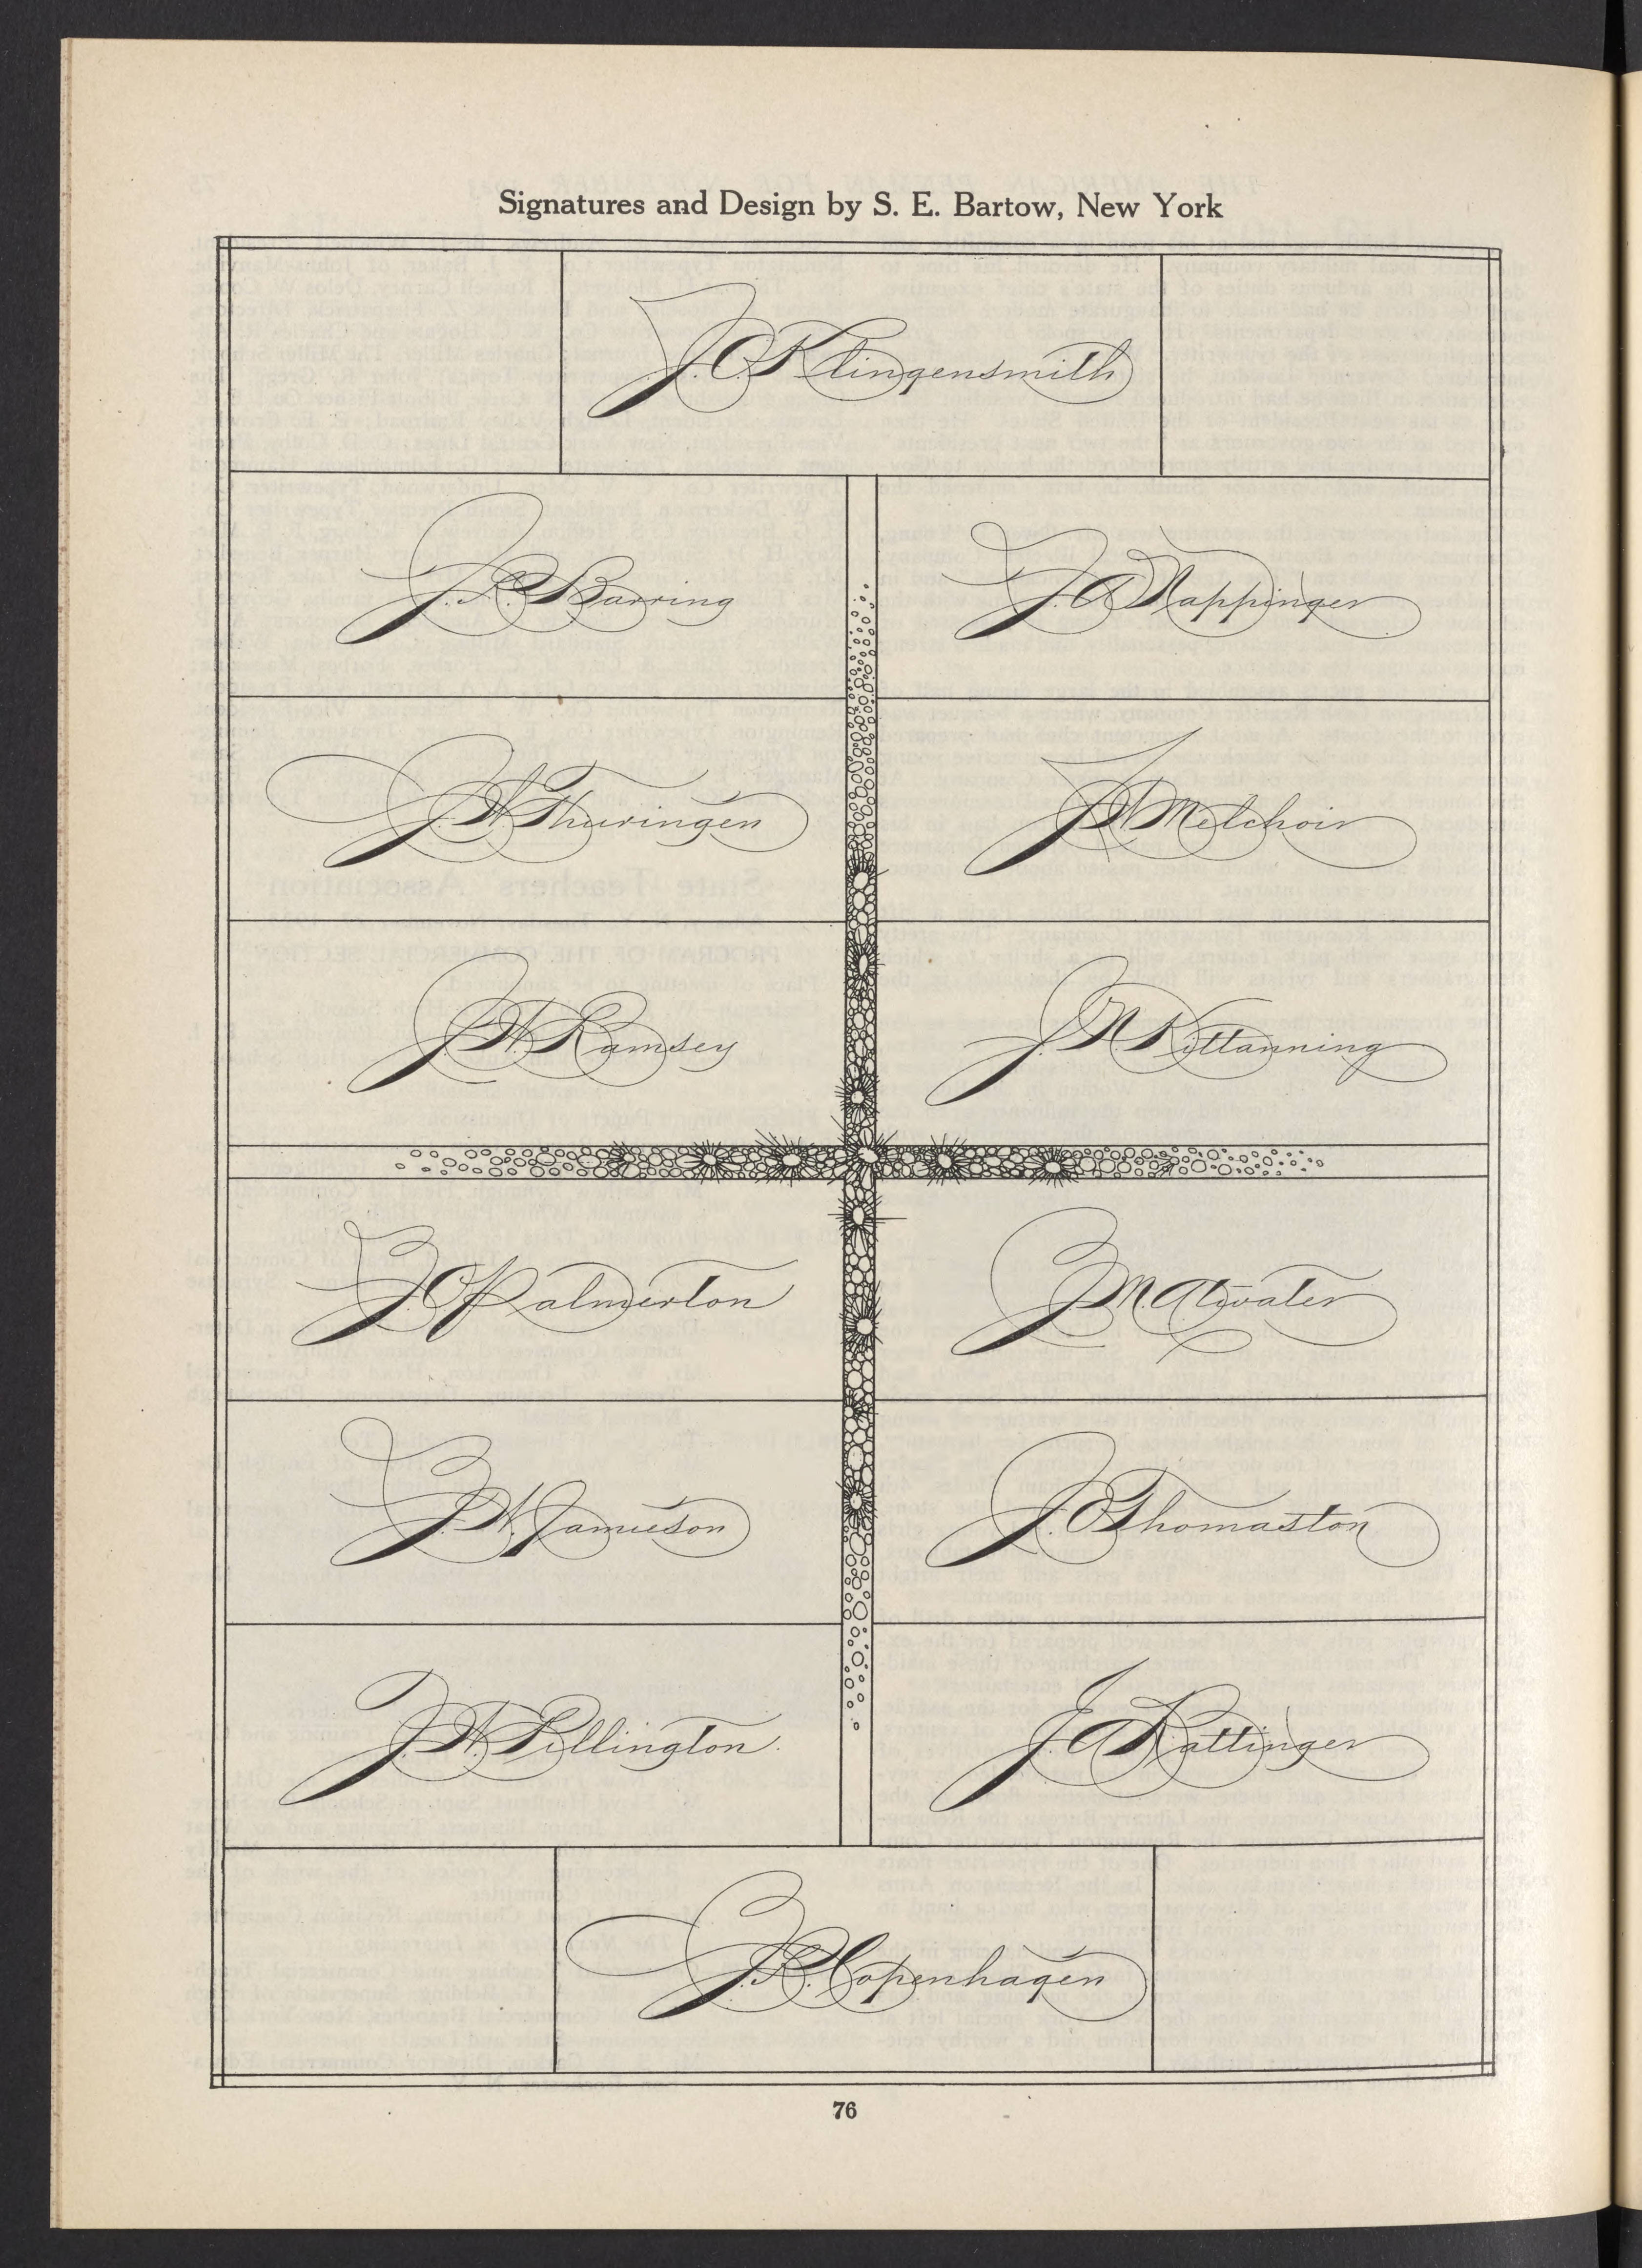 Signatures and Design by S. E. Bartow, New York
J. O. Klingensmith
J. R. Barring
J. A. Nappinger
J. W. Thuringen
J. W. Melchoir
J. W. Ramsey
J. N. Kittanning
J. O. Palmerton
J. M. Atwater
J. W. Jamieson
J. O. Thomaston
J. W. Pillington
J. A. Rattinger
J. R. Copenhagen
76